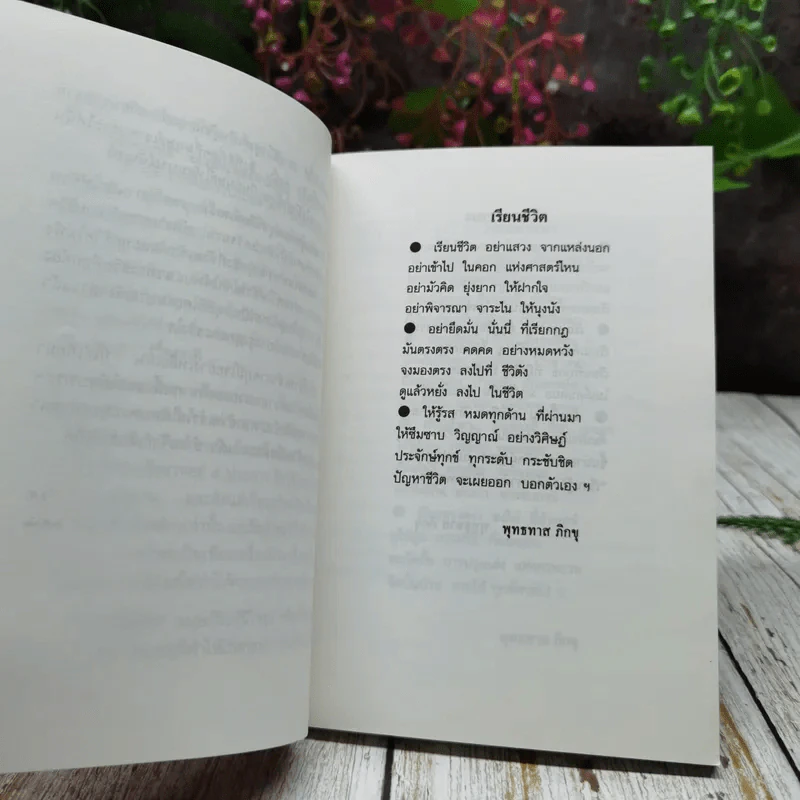 เรียนชีวิต
● เรียนชีวิต อย่าแสวง จากแหล่งนอก
อย่าเข้าไป ในคอก แห่งศาสตร์ไหน
อย่ามัวคิด ยุ่งยาก ให้ฝากใจ
อย่าพิจารณา จาระไน ให้นุงนัง
● อย่ายึดมั่น นั่นนี่ ที่เรียกกฎ
มันตรงตรง คดคด อย่างหมดหวัง
จงมองตรง ลงไปที่ ชีวิตัง
ดูแล้วหยั่ง ลงไป ในชีวิต
● ให้รู้รส หมดทุกด้าน ที่ผ่านมา
ให้ซึมซาบ วิญญาณ์ อย่างวิศิษฎ์
ประจักษ์ทุกข์ ทุกระดับ กระชับชิด
ปัญหาชีวิต จะเผยออก บอกตัวเอง ฯ
พุทธทาส ภิกขุ